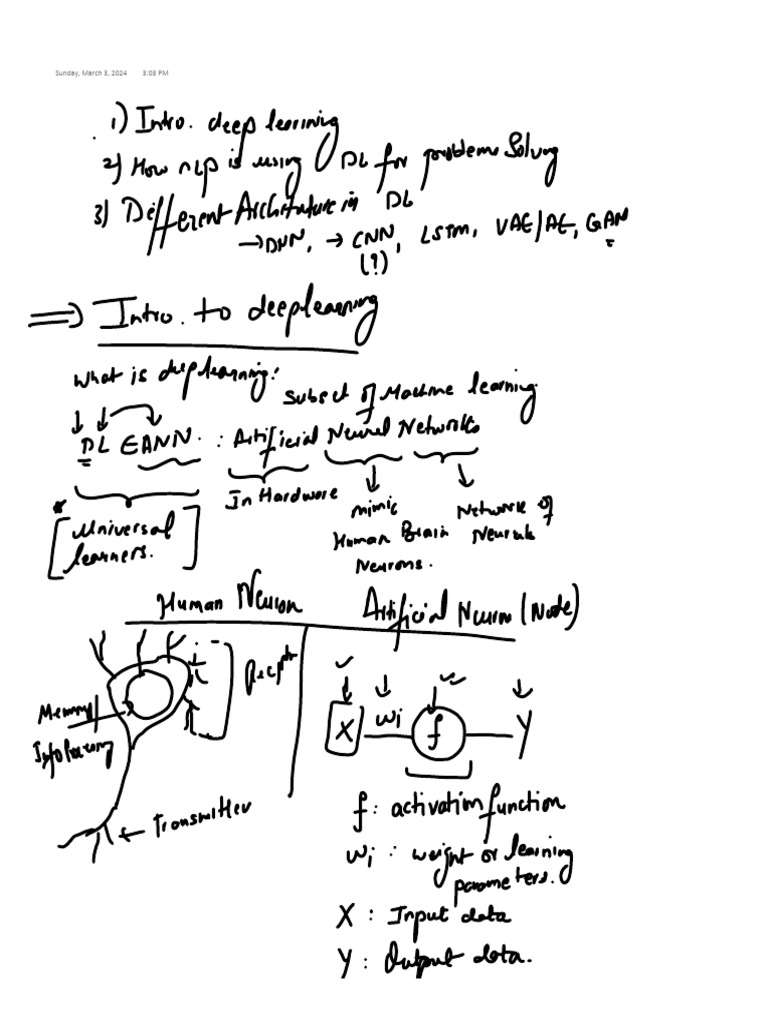 Sunday, March 3, 2024 3:03 PM
1) Intro. deep learining
2) How NLP is using DL for problem Solving
3) Different Architature in DL
→ DNN, → CNN, LSTM, VAE/AE, GAN
(?)
⇒ Intro. to deeplearning
What is deeplearning:
Subset of Machine learning
DL ∈ ANN. : Artificial Neural Networks
In Hardware
mimic Human Brain Neurons.
Network of Neurals
* [Universal learners.]
Human Neuron
Artificial Neuron (Node)
Memory/
Transmitter
X wi f Y
f : activation function
wi : weight or learning
parameters.
X : Input data
Y : Output data.